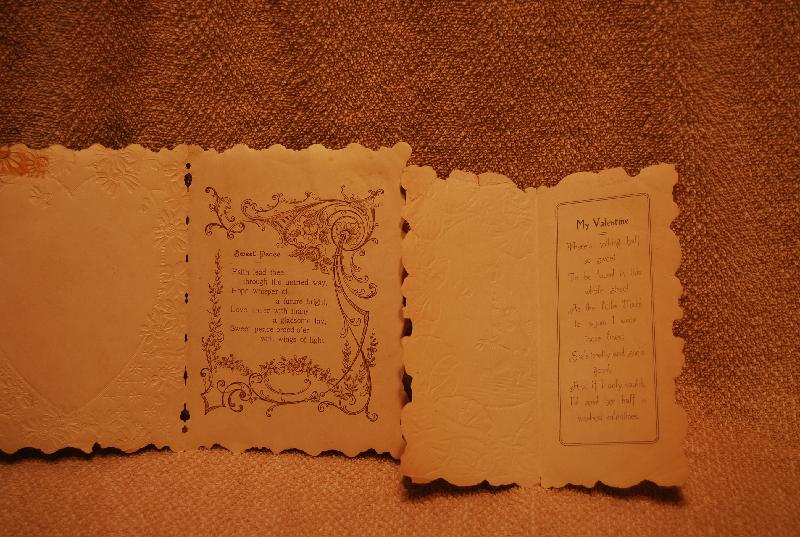 Sweet Peace
Faith lead thee
through the untried way,
Hope whisper of
a future bright,
Love with many
a gladsome lay,
Sweet peace brood o'er
with wings of light.
My Valentine
There's nothing half
so sweet
To be found in this
whole street
As the little Maid
to whom I write
these lines;
She's pretty and she's
good;
And if I only could,
I'd send her half a
valentines.